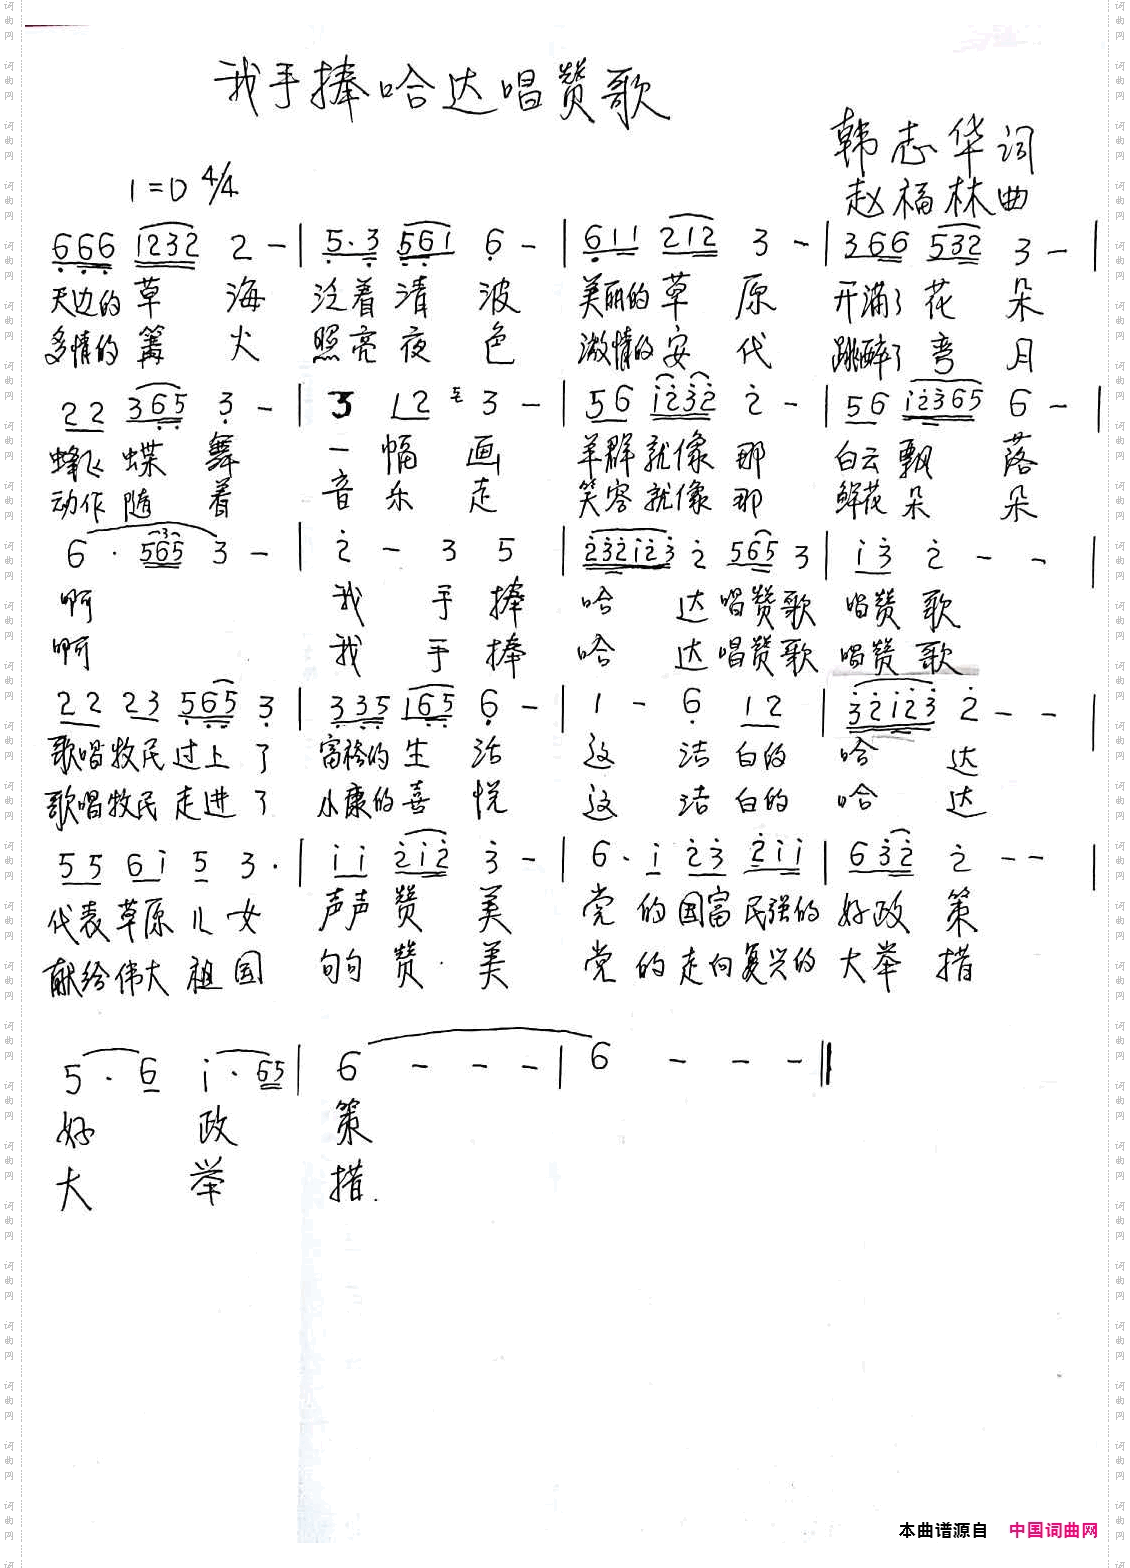 我手捧哈达唱赞歌
韩志华词
1=D 4/4
赵福林曲
666 1232 2 - | 5·3 561 6 - | 611 212 3 - | 366 532 3 - |
天边的草海 泛着清波 美丽的草原 开满了花朵
多情的篝火 照亮夜色 激情的安代 跳醉了弯月
22 365 3 - | 3 12 3 - | 56 1232 2 - | 56 12365 6 -
蜂飞蝶舞 一幅画 羊群就像那 白云飘落
动作随着 音乐走 笑容就像那 鲜花朵朵
6 · 565 3 - | 2 - 3 5 | 232123 2 565 3 | 13 2 - - |
啊 我手捧 哈达唱赞歌 唱赞歌
啊 我手捧 哈达唱赞歌 唱赞歌
22 23 565 3 | 335 165 6 - | 1 - 6 12 | 32123 2 - - |
歌唱牧民过上了 富裕的生活 这洁白的 哈达
歌唱牧民走进了 小康的喜悦 这洁白的 哈达
55 61 5 3 · | 11 212 3 - | 6·1 23 211 | 632 2 - - |
代表草原儿女 声声赞美 党的国富民强的 好政策
献给伟大祖国 句句赞美 党的走向复兴的 大举措
5 · 6 1 · 65 | 6 - - - | 6 - - - ‖
好政策
大举措
本曲谱源自 中国词曲网